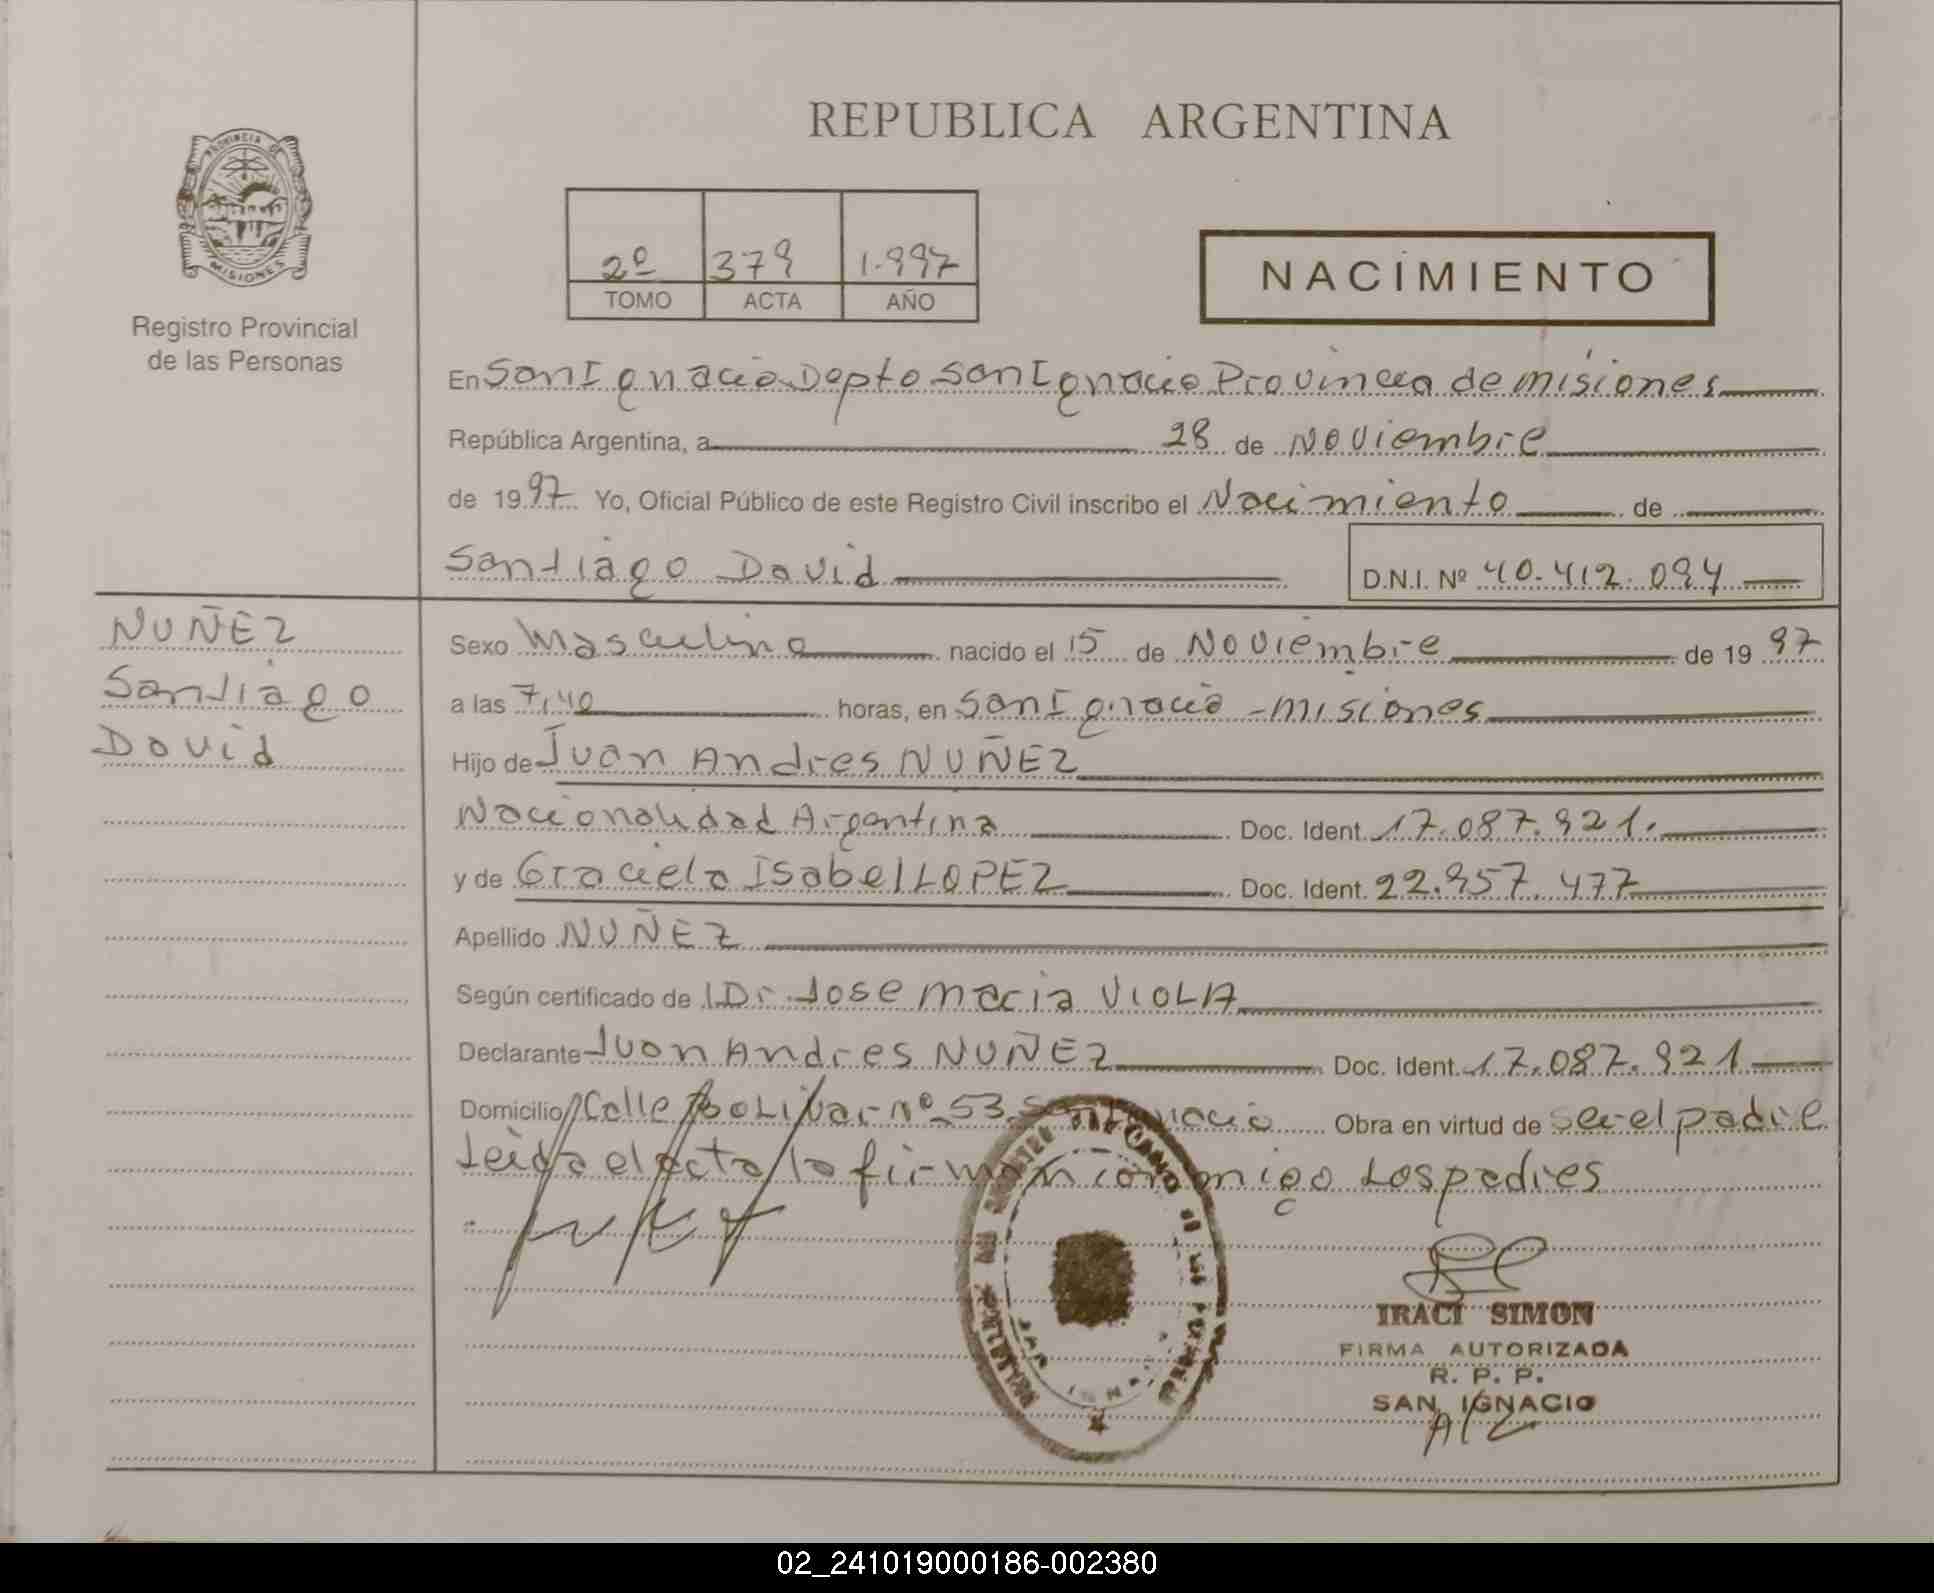 PROVINCIA DE
MISIONES
Registro Provincial
de las Personas
REPUBLICA ARGENTINA
2º 379 1.997
TOMO ACTA AÑO
NACIMIENTO
En San Ignacio Depto San Ignacio Provincia de misiones
República Argentina, a 28 de Noviembre
de 1997 Yo, Oficial Público de este Registro Civil inscribo el Nacimiento de
Santiago David D.N.I. Nº 40.412.094
NUÑEZ
Santiago
David
Sexo Masculino nacido el 15 de Noviembre de 1997
a las 7,40 horas, en San Ignacio - misiones
Hijo de Juan Andres NUÑEZ
Nacionalidad Argentina Doc. Ident. 17.087.921.
y de Graciela Isabel LOPEZ Doc. Ident. 22.957.477
Apellido NUÑEZ
Según certificado de Dr. Jose maria VIOLA
Declarante Juan Andres NUÑEZ Doc. Ident. 17.087.921
Domicilio Calle BOLIVar nº 53 San Ignacio Obra en virtud de ser el padre
Leida el acta la firman conmigo Los padres
IRACI SIMON
FIRMA AUTORIZADA
R. P. P.
SAN IGNACIO
02_241019000186-002380